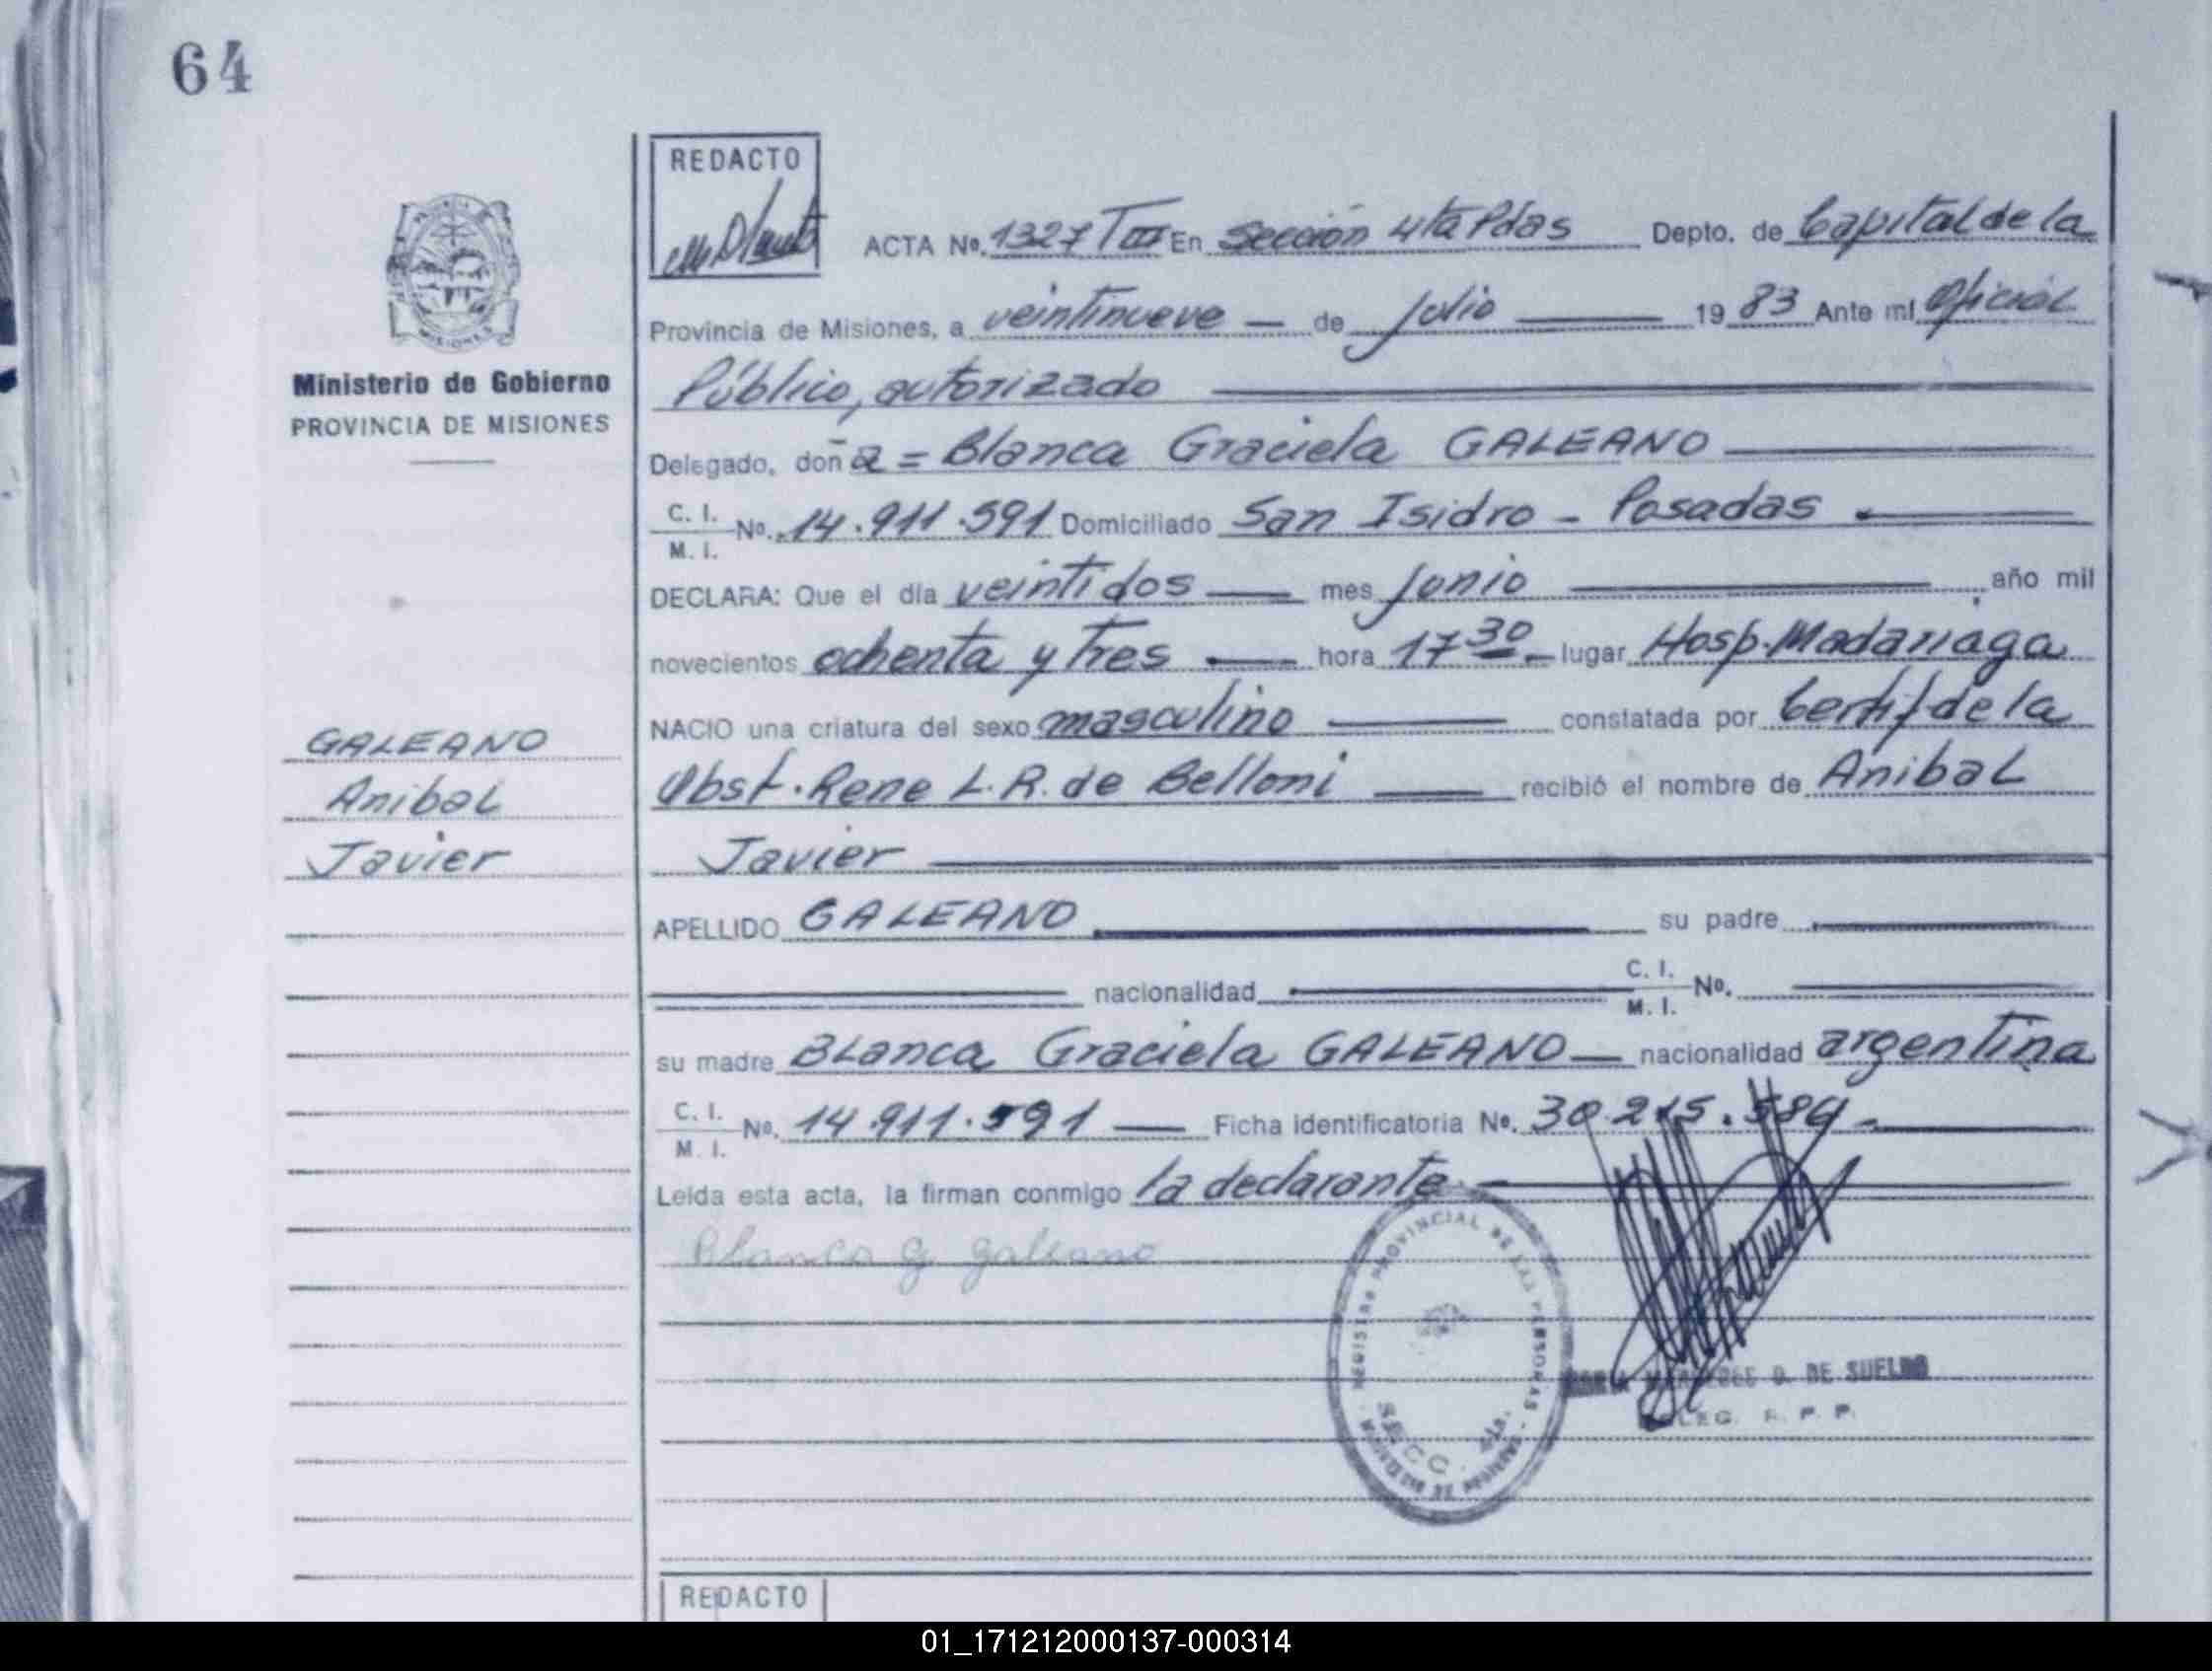 64
REDACTO
ACTA No. 1327 T III En Sección 4ta Pdas Depto. de Capital de la
Provincia de Misiones, a veintinueve — de Julio — 19 83 Ante mí Oficial
Ministerio de Gobierno
PROVINCIA DE MISIONES
Público, autorizado
Delegado, don ña = Blanca Graciela GALEANO
C. I.
M. I.
No. 14.911.591 Domiciliado San Isidro - Posadas
DECLARA: Que el día veintidos — mes Junio — año mil
novecientos ochenta y tres — hora 17 30 — lugar Hosp. Madariaga
NACIO una criatura del sexo masculino — constatada por Certif de la
Obst. Rene L. R. de Belloni — recibió el nombre de Anibal
Javier
GALEANO
Anibal
Javier
APELLIDO GALEANO — su padre —
— nacionalidad — C. I. No. —
M. I.
su madre Blanca Graciela GALEANO — nacionalidad argentina
C. I.
M. I.
No. 14.911.591 — Ficha identificatoria No. 30.215.584 -
Leída esta acta, la firman conmigo la declarante
Blanca G Galeano
REGISTRO PROVINCIAL DE LAS PERSONAS
SECC. 4ta.
DE SUELDO
DELEG. R. P. P.
REDACTO
01_171212000137-000314